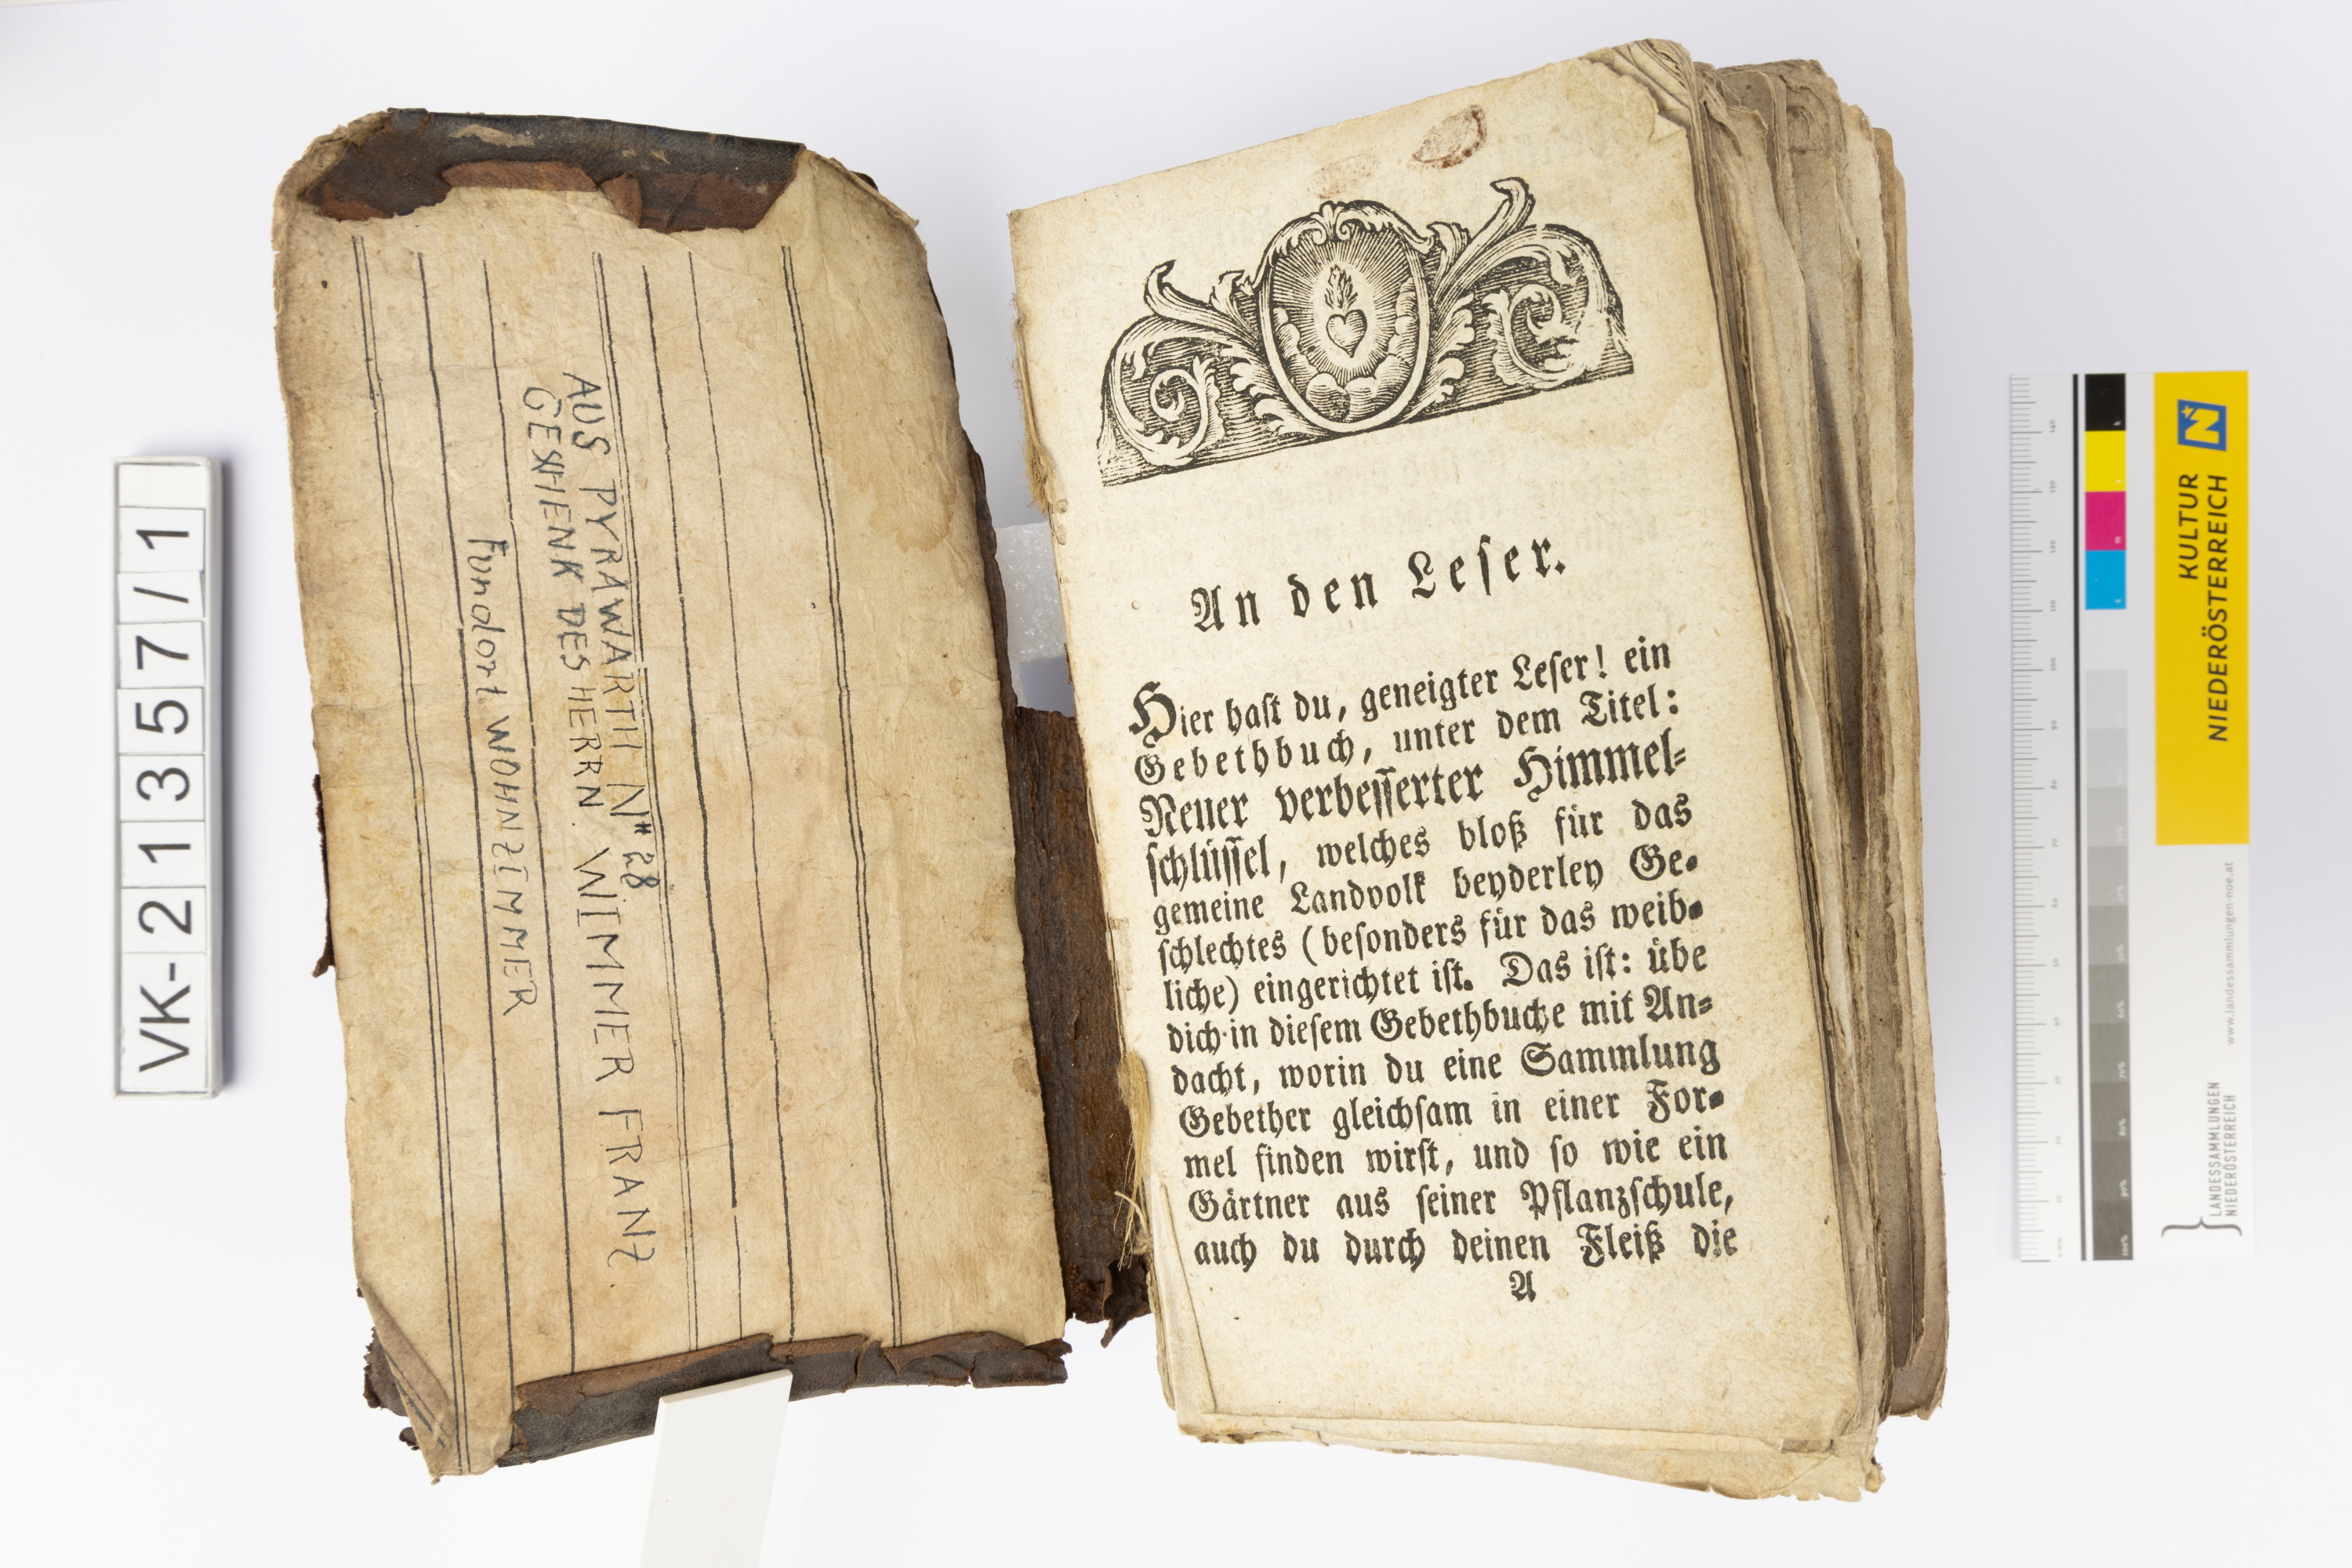 VK-21357/1
AUS PYRAWARTH N# 28
GESCHENK DES HERRN. WIMMER FRANZ.
Fundort WOHNZIMMER
An den Leser.
Hier haſt du, geneigter Leſer! ein
Gebethbuch, unter dem Titel:
Neuer verbeſſerter Himmel⸗
ſchlüſſel, welches bloß für das
gemeine Landvolk beyderley Ge⸗
ſchlechtes (beſonders für das weib⸗
liche) eingerichtet iſt. Das iſt: übe
dich in dieſem Gebethbuche mit An⸗
dacht, worin du eine Sammlung
Gebether gleichſam in einer For⸗
mel finden wirſt, und ſo wie ein
Gärtner aus ſeiner Pflanzſchule,
auch du durch deinen Fleiß die
A
KULTUR
NIEDERÖSTERREICH
www.landessammlungen-noe.at
LANDESSAMMLUNGEN
NIEDERÖSTERREICH